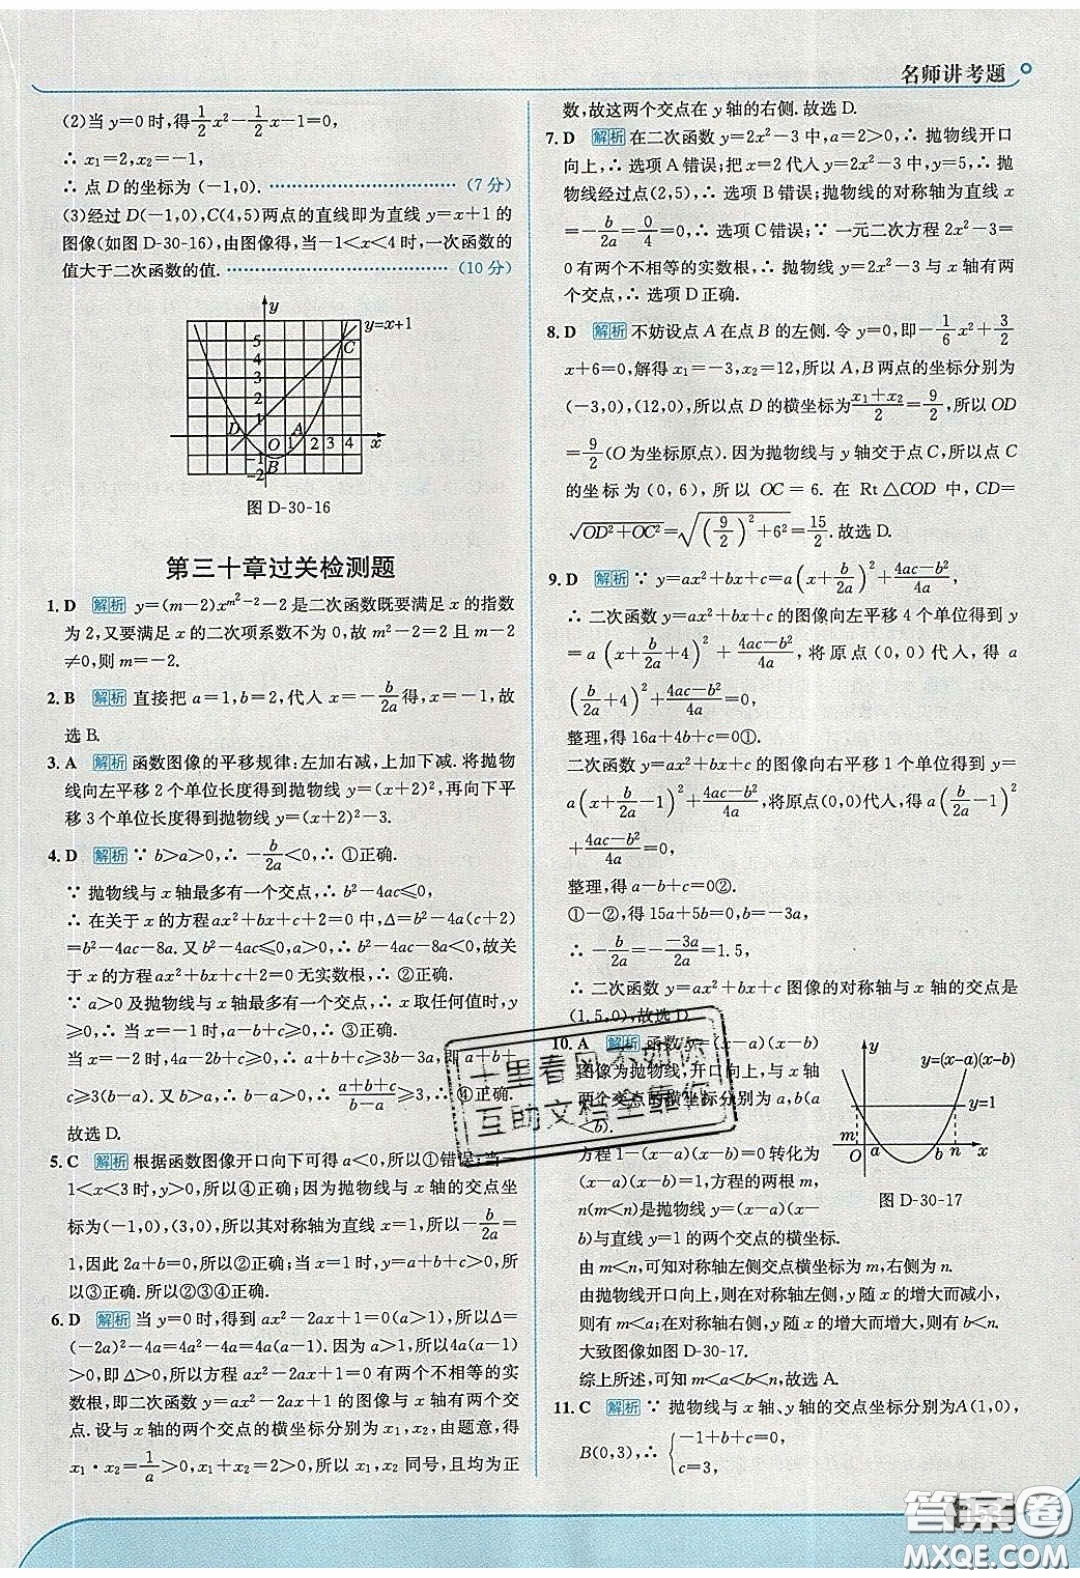 名师讲考题
(2)当 y=0 时,得1/2x²-1/2x-1=0,
∴ x₁=2,x₂=-1,
∴ 点 D 的坐标为 (-1,0). ………………………… (7 分)
(3)经过 D(-1,0),C(4,5)两点的直线即为直线 y=x+1 的
图像(如图 D-30-16),由图像得,当-1<x<4 时,一次函数的
值大于二次函数的值. ………………………… (10 分)
y
y=x+1
5
C
4
3
2
1
D
A
O
1 2 3 4
x
-1
B
-2
图 D-30-16
第三十章过关检测题
1. D 解析 y=(m-2)x^{m²-2}-2 是二次函数既要满足 x 的指数
为 2,又要满足 x 的二次项系数不为 0,故 m²-2=2 且 m-2
≠0,则 m=-2.
2. B 解析 直接把 a=1,b=2,代入 x=-b/2a得,x=-1,故
选 B.
3. A 解析 函数图像的平移规律:左加右减,上加下减. 将抛物
线向左平移 2 个单位长度得到抛物线 y=(x+2)²,再向下平
移 3 个单位长度得到抛物线 y=(x+2)²-3.
4. D 解析 ∵ b>a>0,∴ -b/2a<0,∴ ①正确.
∵ 抛物线与 x 轴最多有一个交点,∴ b²-4ac≤0,
∴ 在关于 x 的方程 ax²+bx+c+2=0 中,Δ=b²-4a(c+2)
=b²-4ac-8a. 又 b²-4ac≤0,a>0,∴ b²-4ac-8a<0,故关
于 x 的方程 ax²+bx+c+2=0 无实数根,∴ ②正确.
∵ a>0 及抛物线与 x 轴最多有一个交点,∴ x 取任何值时,y
≥0,∴ 当 x=-1 时,a-b+c≥0,∴ ③正确.
当 x=-2 时,4a-2b+c≥0,a+b+c≥3b-3a,即 a+b+
c≥3(b-a). 又 b>a,∴ (a+b+c)/(b-a)≥3,∴ ④正确.
故选 D.
5. C 解析 根据函数图像开口向下可得 a<0,所以①错误;当-
1<x<3 时,y>0,所以④正确;因为抛物线与 x 轴的交点坐
标为(-1,0),(3,0),所以其对称轴为直线 x=1,所以-b/2a=
1,因此 2a+b=0,所以②正确;当 x=1 时,y=a+b+c>0,
所以③正确. 所以②③④正确.
6. D 解析 当 y=0 时,得到 ax²-2ax+1=0(a>1),所以 Δ=
(-2a)²-4a=4a²-4a=4a(a-1). 因为 a>1,所以 4a(a-1)
>0,即 Δ>0,所以方程 ax²-2ax+1=0 有两个不相等的实
数根,即二次函数 y=ax²-2ax+1 的图像与 x 轴有两个交
点. 设与 x 轴的两个交点的横坐标分别为 x₁,x₂,由题意,得
x₁·x₂=1/a>0,x₁+x₂=2>0,所以 x₁,x₂ 同号,且均为正
数,故这两个交点在 y 轴的右侧. 故选 D.
7. D 解析 在二次函数 y=2x²-3 中,a=2>0,∴ 抛物线开口
向上,∴ 选项 A 错误;把 x=2 代入 y=2x²-3 中,y=5,∴ 抛
物线经过点(2,5),∴ 选项 B 错误;抛物线的对称轴为直线 x
=-b/2a=0/4=0,∴ 选项 C 错误;∵ 一元二次方程 2x²-3=
0 有两个不相等的实数根,∴ 抛物线 y=2x²-3 与 x 轴有两
个交点,∴ 选项 D 正确.
8. D 解析 不妨设点 A 在点 B 的左侧. 令 y=0,即-1/6x²+3/2
x+6=0,解得 x₁=-3,x₂=12,所以 A,B 两点的坐标分别为
(-3,0),(12,0),所以点 D 的横坐标为(x₁+x₂)/2=9/2,所以 OD
=9/2(O 为坐标原点). 因为抛物线与 y 轴交于点 C,所以点 C
的坐标为 (0, 6), 所以 OC = 6. 在 Rt △COD 中, CD=
√(OD²+OC²)=√((9/2)²+6²)=15/2. 故选 D.
9. D 解析 ∵ y=ax²+bx+c=a(x+b/2a)²+(4ac-b²)/4a,
∴ 二次函数 y=ax²+bx+c 的图像向左平移 4 个单位得到 y
=a(x+b/2a+4)²+(4ac-b²)/4a,将原点(0,0)代入,得 a
(b/2a+4)²+(4ac-b²)/4a=0,
整理,得 16a+4b+c=0①.
二次函数 y=ax²+bx+c 的图像向右平移 1 个单位得到 y=
a(x+b/2a-1)²+(4ac-b²)/4a,将原点(0,0)代入,得 a(b/2a-1)²
+(4ac-b²)/4a=0,
整理,得 a-b+c=0②.
①-②,得 15a+5b=0,b=-3a,
∴ -b/2a=-(-3a)/2a=1.5,
∴ 二次函数 y=ax²+bx+c 图像的对称轴与 x 轴的交点是
(1.5,0),故选 D.
10. A 解析 函数 y=(x-a)(x-b)
图像为抛物线,开口向上,与 x 轴
两个交点的横坐标分别为 a,b(a
<b).
方程 1-(x-a)(x-b)=0 转化为
(x-a)(x-b)=1,方程的两根 m,
n(m<n)是抛物线 y=(x-a)(x-
b)与直线 y=1 的两个交点的横坐标.
由 m<n,可知对称轴左侧交点横坐标为 m,右侧为 n.
由抛物线开口向上,则在对称轴左侧,y 随 x 的增大而减少,
则有 m<a;在对称轴右侧,y 随 x 的增大而增大,则有 b<n.
大致图像如图 D-30-17.
综上所述,可知 m<a<b<n,故选 A.
y
y=(x-a)(x-b)
y=1
m
O
a
b
n
x
图 D-30-17
11. C 解析 ∵ 抛物线与 x 轴、y 轴的交点坐标分别为A(1,0),
B(0,3),∴ {-1+b+c=0,
c=3,
十里春风不如你
互助文档全靠你
答案圈
MXQE.COM